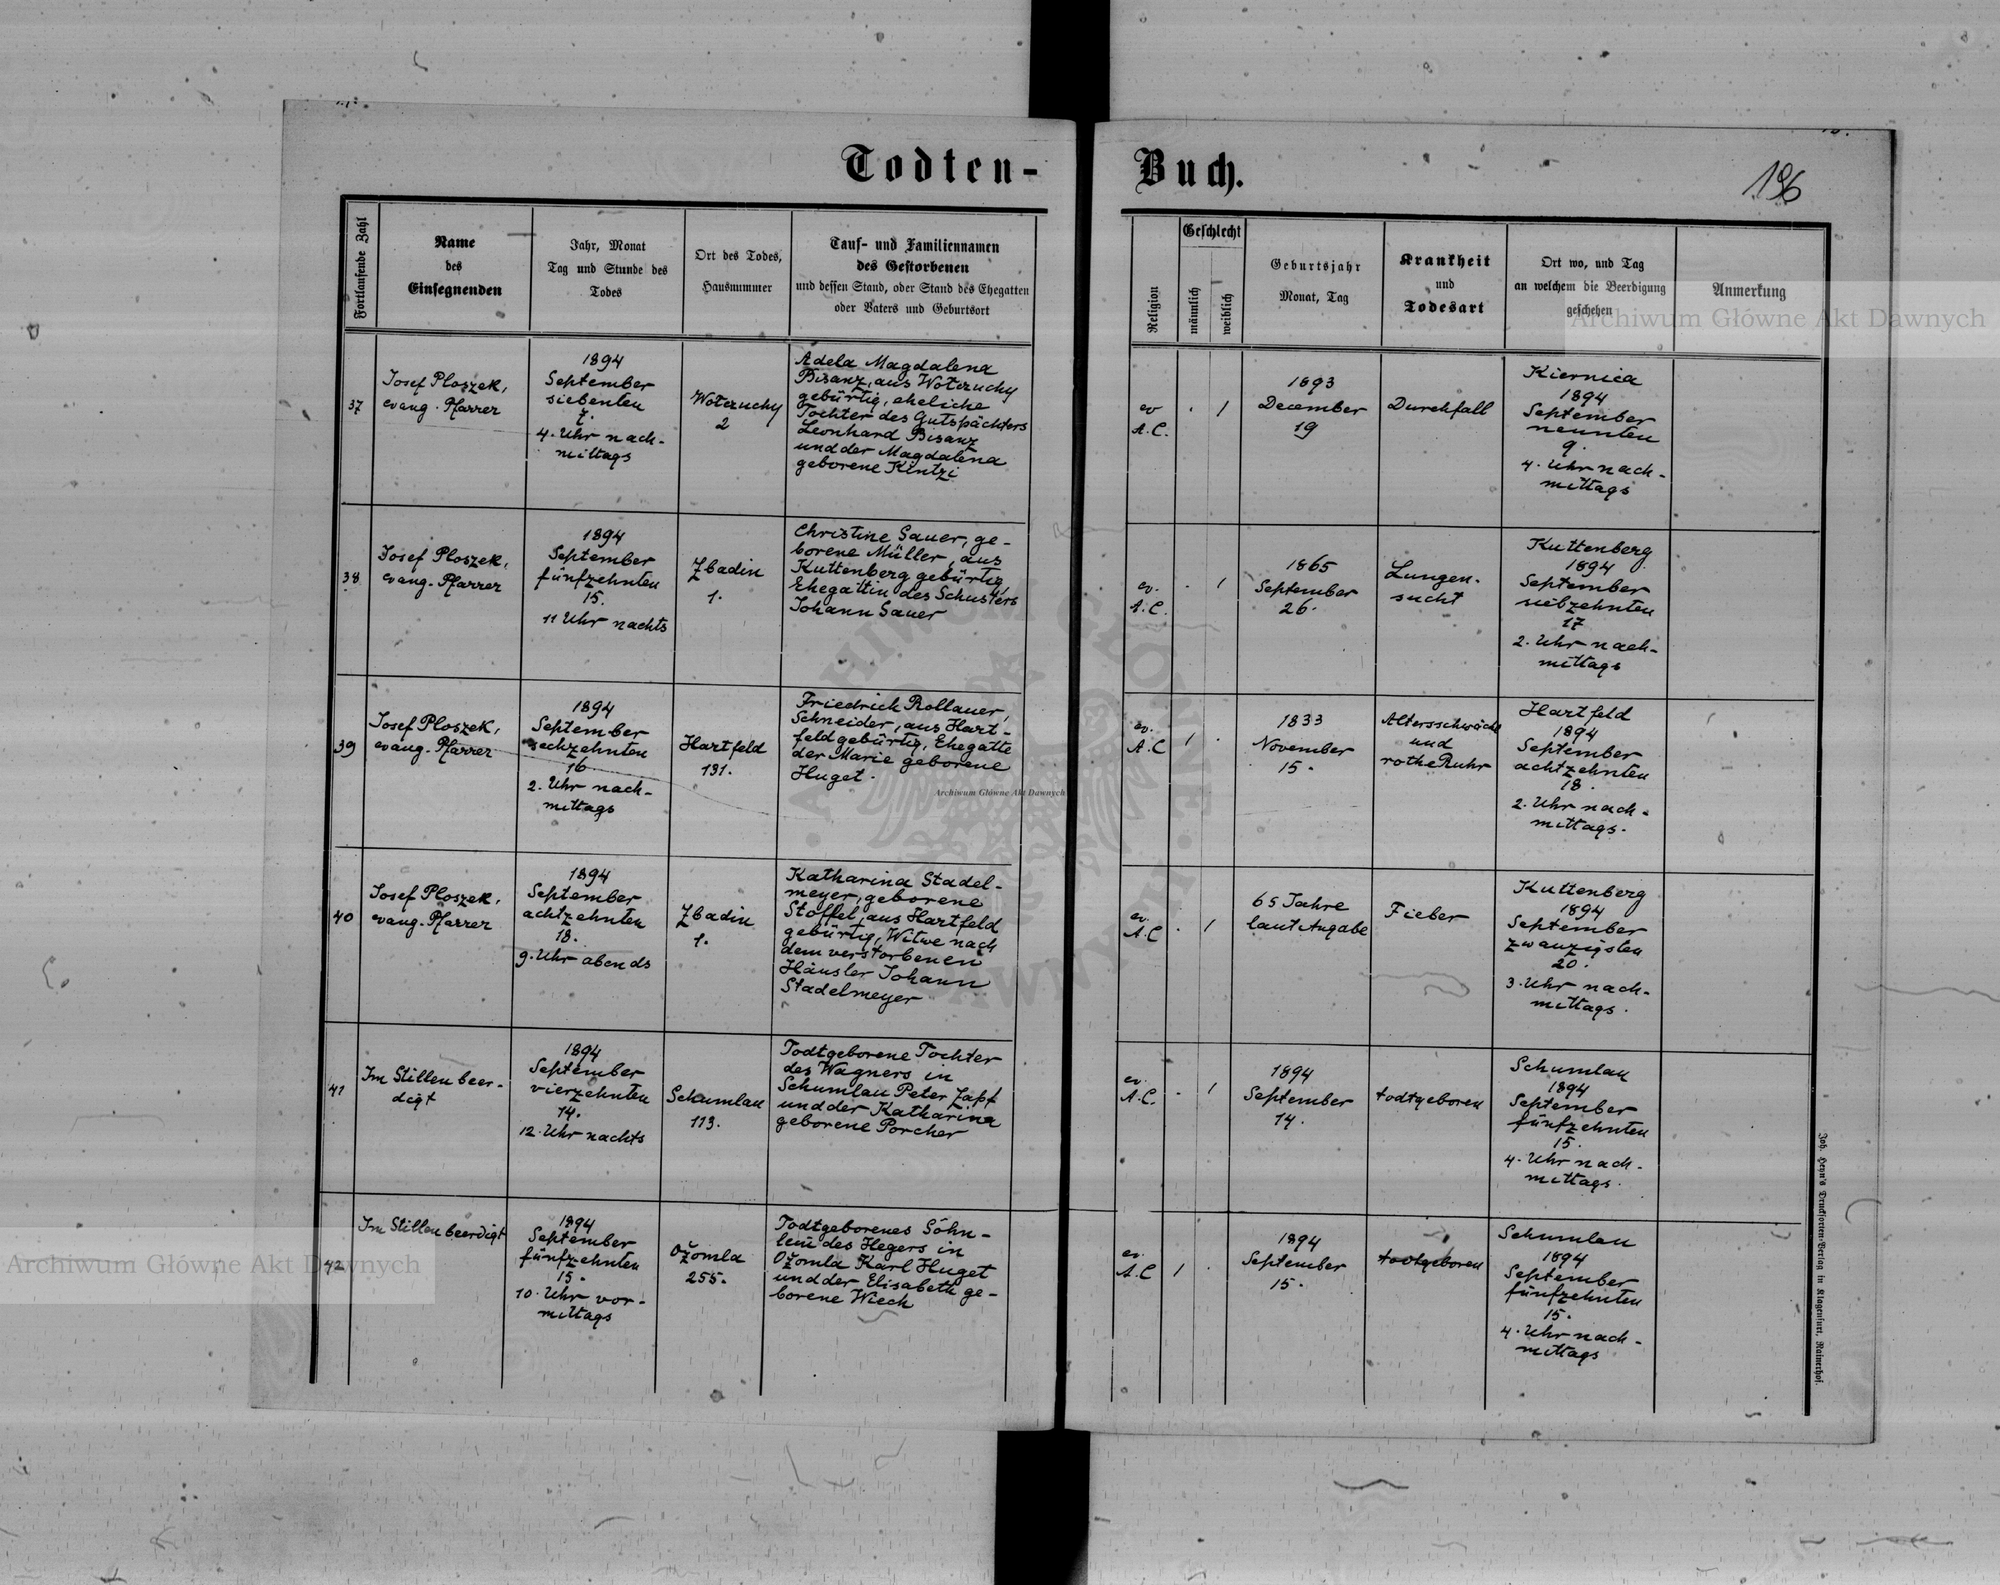 Todten-
Buch.
196
Fortlaufende Zahl
Name
des
Einsegnenden
Jahr, Monat
Tag und Stunde des
Todes
Ort des Todes,
Hausnummer
Tauf- und Familiennamen
des Gestorbenen
und dessen Stand, oder Stand des Ehegatten
oder Vaters und Geburtsort
Religion
Geschlecht
männlich
weiblich
Geburtsjahr
Monat, Tag
Krankheit
und
Todesart
Ort wo, und Tag
an welchem die Beerdigung
geschehen
Anmerkung
37
Josef Ploszek,
evang. Pfarrer
1894
September
siebenten
7.
4. Uhr nach-
mittags
Wotczuchy
2
Adela Magdalena
Bisanz, aus Wotczuchy
gebürtig, eheliche
Tochter des Gutspächters
Leonhard Bisanz
und der Magdalena
geborene Kintzi
ev
A.C.
. 1
1893
December
19
Durchfall
Kiernica
1894
September
neunten
9.
4. Uhr nach-
mittags
38
Josef Ploszek,
evang. Pfarrer
1894
September
fünfzehnten
15.
11 Uhr nachts
Zbadin
1.
Christine Sauer, ge-
borene Müller, aus
Kuttenberg gebürtig,
Ehegattin des Schusters
Johann Sauer
ev.
A.C.
. 1
1865
September
26.
Lungen-
sucht
Kuttenberg
1894
September
siebzehnten
17
2. Uhr nach-
mittags
39
Josef Ploszek,
evang. Pfarrer
1894
September
sechzehnten
16
2. Uhr nach-
mittags
Hartfeld
131.
Friedrich Rollauer,
Schneider, aus Hart-
feld gebürtig, Ehegatte
der Marie geborene
Huget.
ev.
A.C
1 .
1833
November
15.
Altersschwäche
und
rothe Ruhr
Hartfeld
1894
September
achtzehnten
18.
2. Uhr nach-
mittags.
40
Josef Ploszek,
evang. Pfarrer
1894
September
achtzehnten
18.
9. Uhr abends
Zbadin
1.
Katharina Stadel-
meyer, geborene
Stoffel, aus Hartfeld
gebürtig, Witwe nach
dem verstorbenen
Häusler Johann
Stadelmeyer
ev.
A.C
. 1
65 Jahre
laut Angabe
Fieber
Kuttenberg
1894
September
zwanzigsten
20.
3. Uhr nach-
mittags.
41
Im Stillen beer-
digt
1894
September
vierzehnten
14.
12. Uhr nachts
Schumlau
113.
Todtgeborene Tochter
des Wagners in
Schumlau Peter Zapf
und der Katharina
geborene Porcher
ev.
A.C.
. 1
1894
September
14.
todtgeboren
Schumlau
1894
September
fünfzehnten
15.
4. Uhr nach-
mittags.
42
Im Stillen beerdigt
1894
September
fünfzehnten
15.
10. Uhr vor-
mittags
Ožomla
255.
Todtgeborenes Söhn-
lein des Hegers in
Ožomla Karl Huget
und der Elisabeth ge-
borene Wiech
ev.
A.C
1 .
1894
September
15.
todtgeboren
Schumlau
1894
September
fünfzehnten
15.
4. Uhr nach-
mittags
Joh. Heyn's Drucksorten-Verlag in Klagenfurt, Rainerhof.
Archiwum Główne Akt Dawnych
Archiwum Główne Akt Dawnych
Archiwum Główne Akt Dawnych
ARCHIWUM GŁÓWNE AKT DAWNYCH